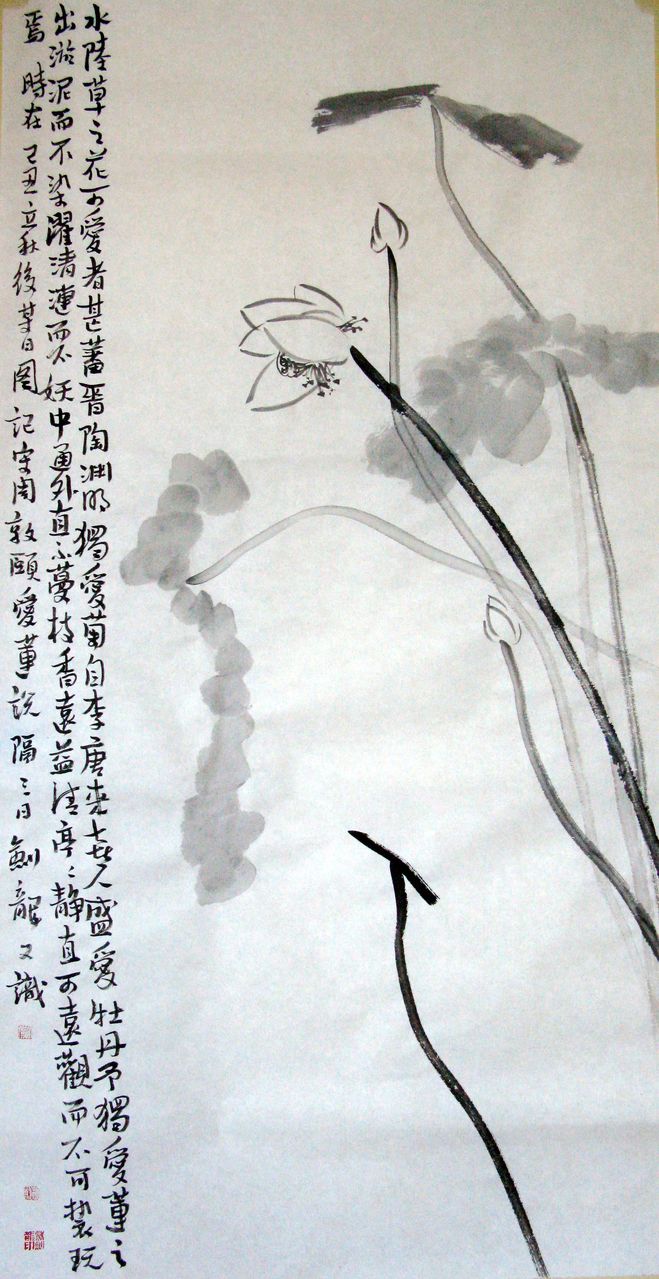 水陸草之花可愛者甚蕃晋陶渊明獨愛菊自李唐来世人盛愛牡丹予獨愛蓮之
出淤泥而不染濯清漣而不妖中通外直不蔓枝香遠益清亭亭静直可遠觀而不可褻玩
焉時在己丑立秋後某日图記宋周敦頤愛蓮説隔三日劍龍又識